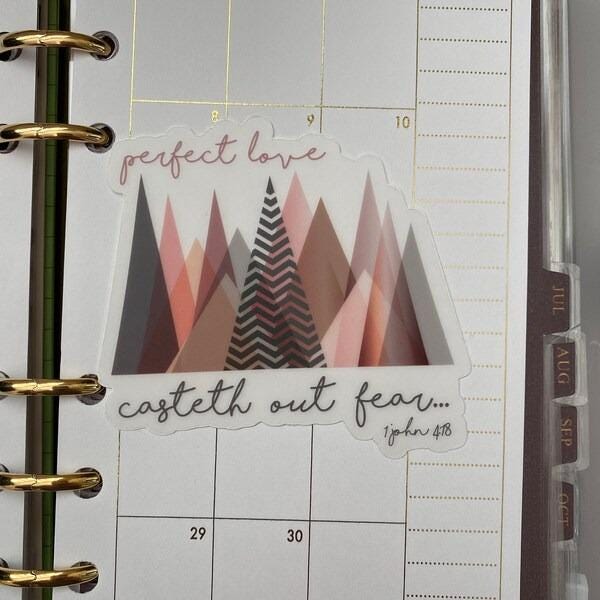 8 9 10
perfect love
casteth out fear...
1 john 4:18
29 30
JUL
AUG
SEP
OCT